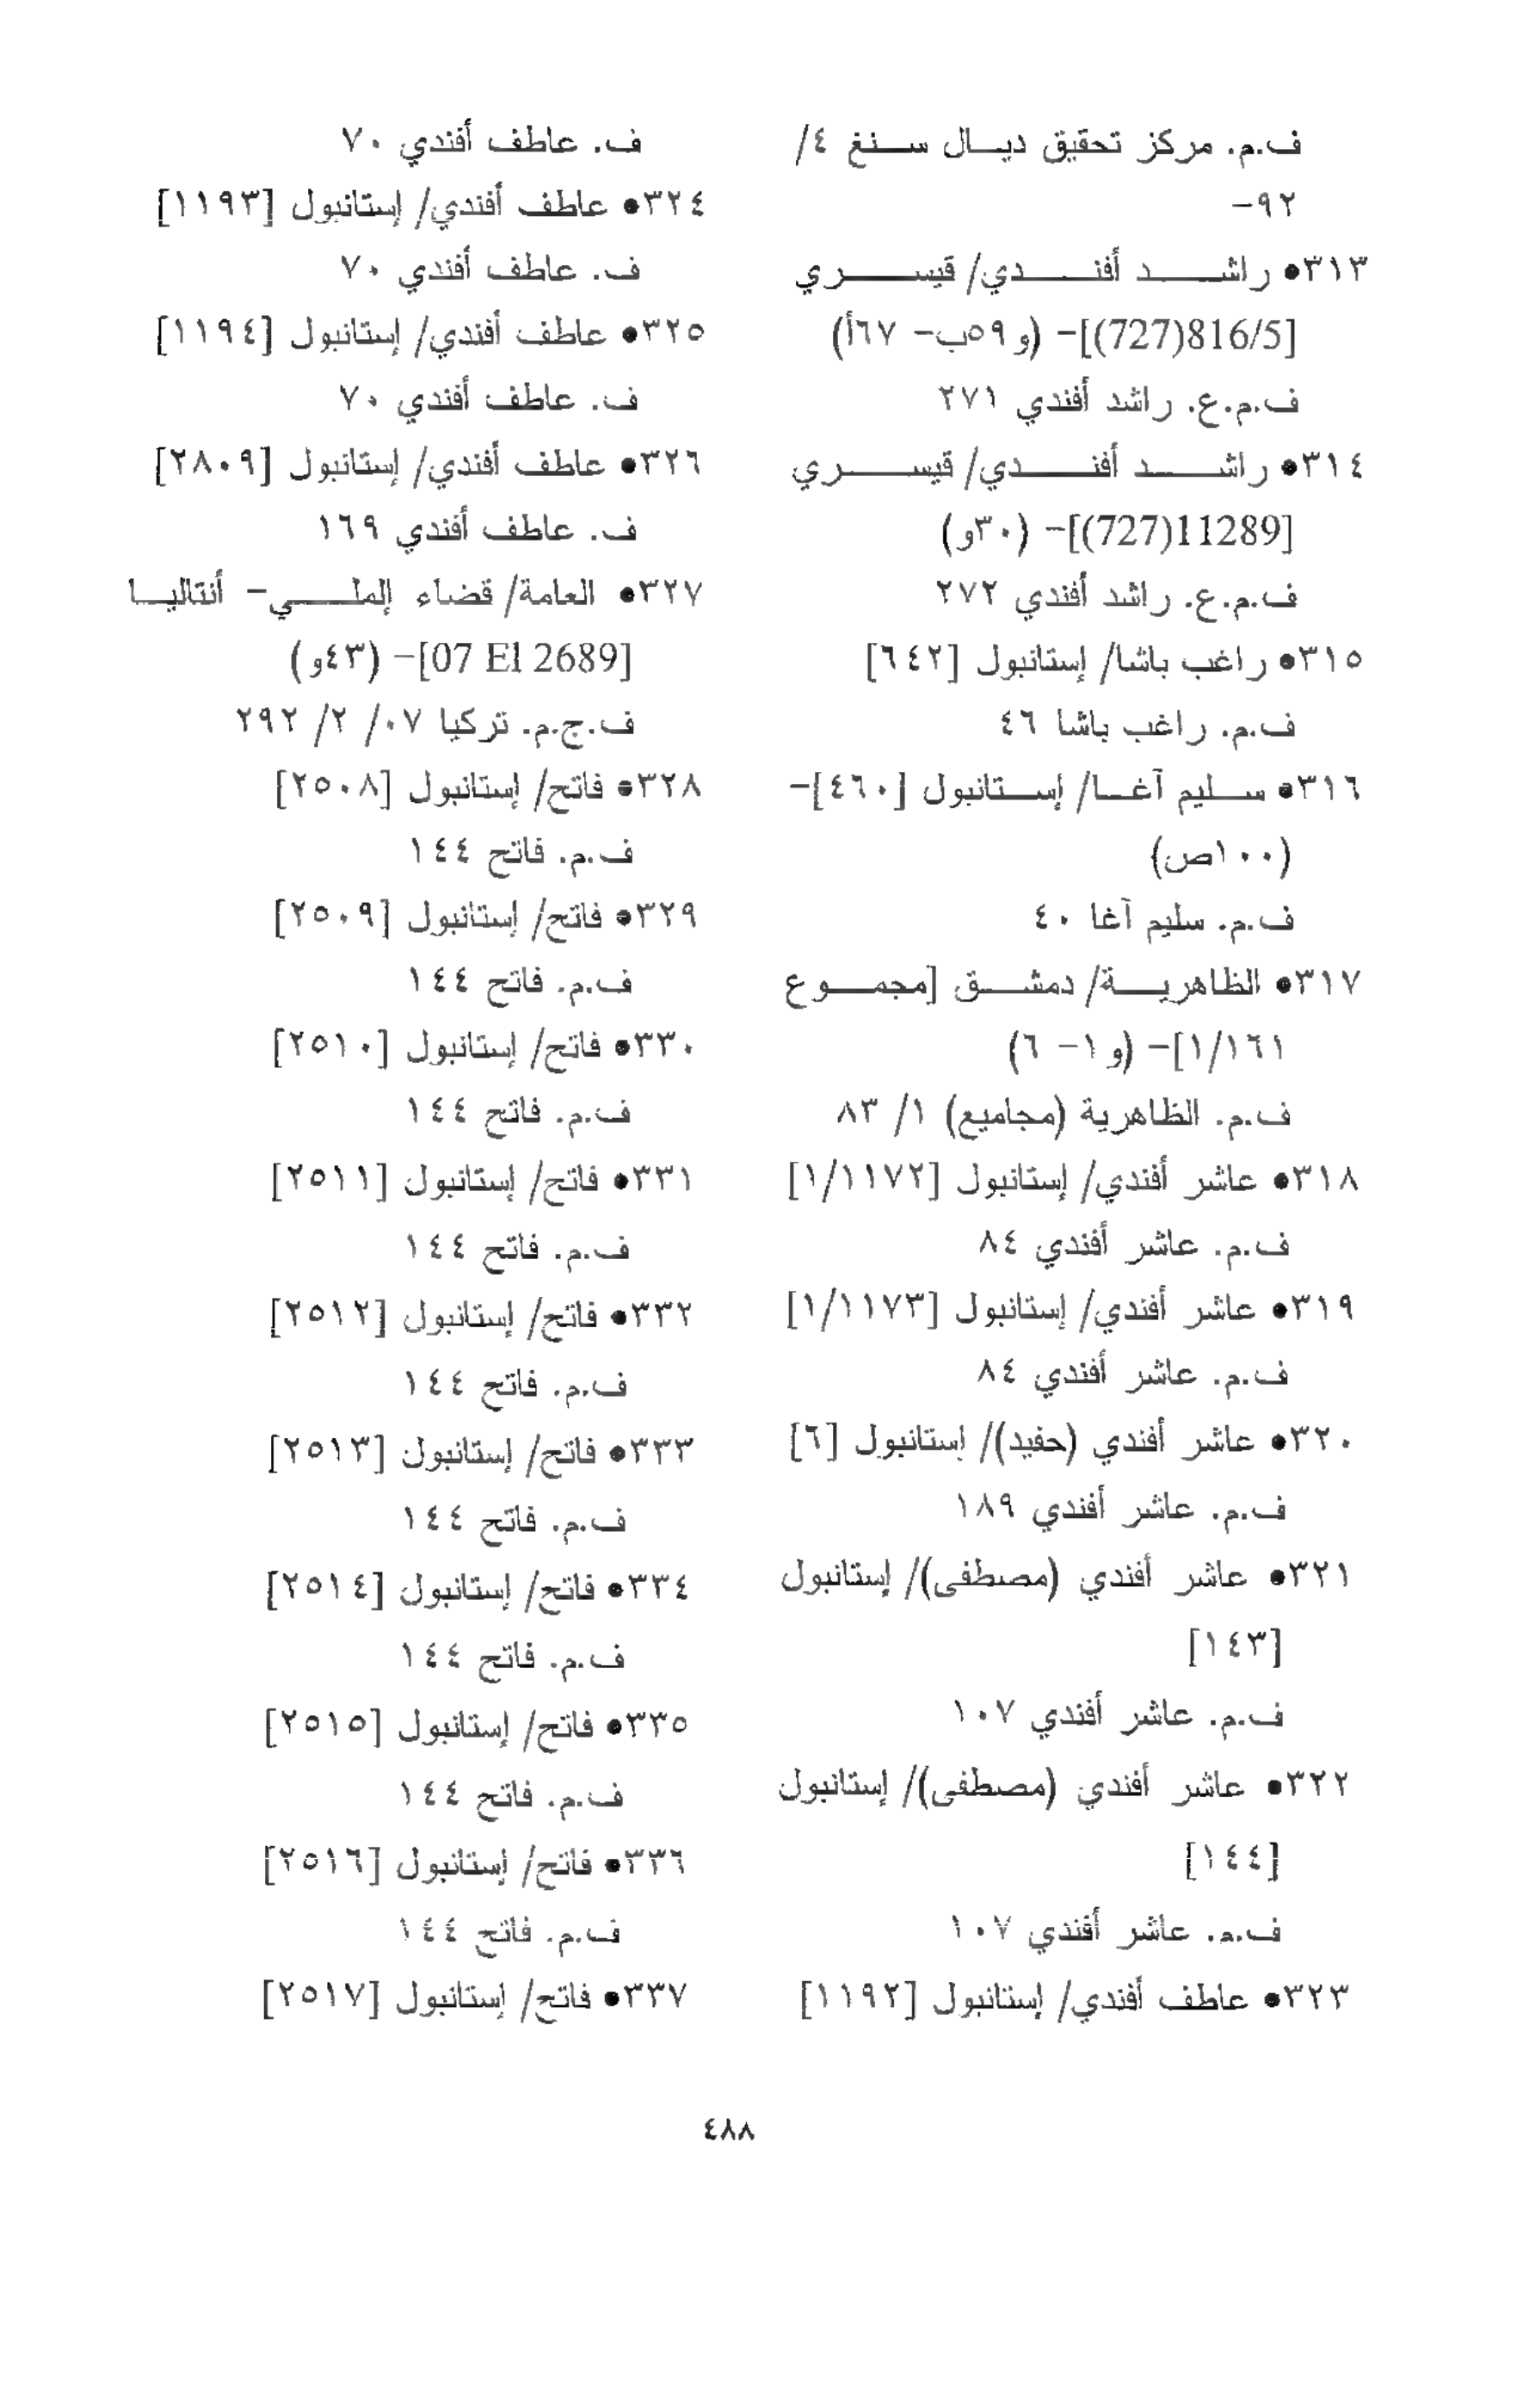 ف.م. مركز تحقيق ديال سنغ ٤/
٩٢-
٣١٣• راشد أفندي/ قيسري
[816/5(727)]- (و٥٩ب- ٦٧أ)
ف.م.ع. راشد أفندي ٢٧١
٣١٤• راشد أفندي/ قيسري
[11289(727)]- (٣٠و)
ف.م.ع. راشد أفندي ٢٧٢
٣١٥• راغب باشا/ إستانبول [٦٤٢]
ف.م. راغب باشا ٤٦
٣١٦• سليم آغا/ إستانبول [٤٦٠]-
(١٠٠ص)
ف.م. سليم آغا ٤٠
٣١٧• الظاهرية/ دمشق [مجموع
١/١٦١]- (و١- ٦)
ف.م. الظاهرية (مجاميع) ١/ ٨٣
٣١٨• عاشر أفندي/ إستانبول [١/١١٧٢]
ف.م. عاشر أفندي ٨٤
٣١٩• عاشر أفندي/ إستانبول [١/١١٧٣]
ف.م. عاشر أفندي ٨٤
٣٢٠• عاشر أفندي (حفيد)/ إستانبول [٦]
ف.م. عاشر أفندي ١٨٩
٣٢١• عاشر أفندي (مصطفى)/ إستانبول
[١٤٣]
ف.م. عاشر أفندي ١٠٧
٣٢٢• عاشر أفندي (مصطفى)/ إستانبول
[١٤٤]
ف.م. عاشر أفندي ١٠٧
٣٢٣• عاطف أفندي/ إستانبول [١١٩٢]
ف. عاطف أفندي ٧٠
٣٢٤• عاطف أفندي/ إستانبول [١١٩٣]
ف. عاطف أفندي ٧٠
٣٢٥• عاطف أفندي/ إستانبول [١١٩٤]
ف. عاطف أفندي ٧٠
٣٢٦• عاطف أفندي/ إستانبول [٢٨٠٩]
ف. عاطف أفندي ١٦٩
٣٢٧• العامة/ قضاء إلملي- أنتاليا
[07 El 2689]- (٤٣و)
ف.ج.م. تركيا ٠٧/ ٢/ ٢٩٢
٣٢٨• فاتح/ إستانبول [٢٥٠٨]
ف.م. فاتح ١٤٤
٣٢٩• فاتح/ إستانبول [٢٥٠٩]
ف.م. فاتح ١٤٤
٣٣٠• فاتح/ إستانبول [٢٥١٠]
ف.م. فاتح ١٤٤
٣٣١• فاتح/ إستانبول [٢٥١١]
ف.م. فاتح ١٤٤
٣٣٢• فاتح/ إستانبول [٢٥١٢]
ف.م. فاتح ١٤٤
٣٣٣• فاتح/ إستانبول [٢٥١٣]
ف.م. فاتح ١٤٤
٣٣٤• فاتح/ إستانبول [٢٥١٤]
ف.م. فاتح ١٤٤
٣٣٥• فاتح/ إستانبول [٢٥١٥]
ف.م. فاتح ١٤٤
٣٣٦• فاتح/ إستانبول [٢٥١٦]
ف.م. فاتح ١٤٤
٣٣٧• فاتح/ إستانبول [٢٥١٧]
٤٨٨